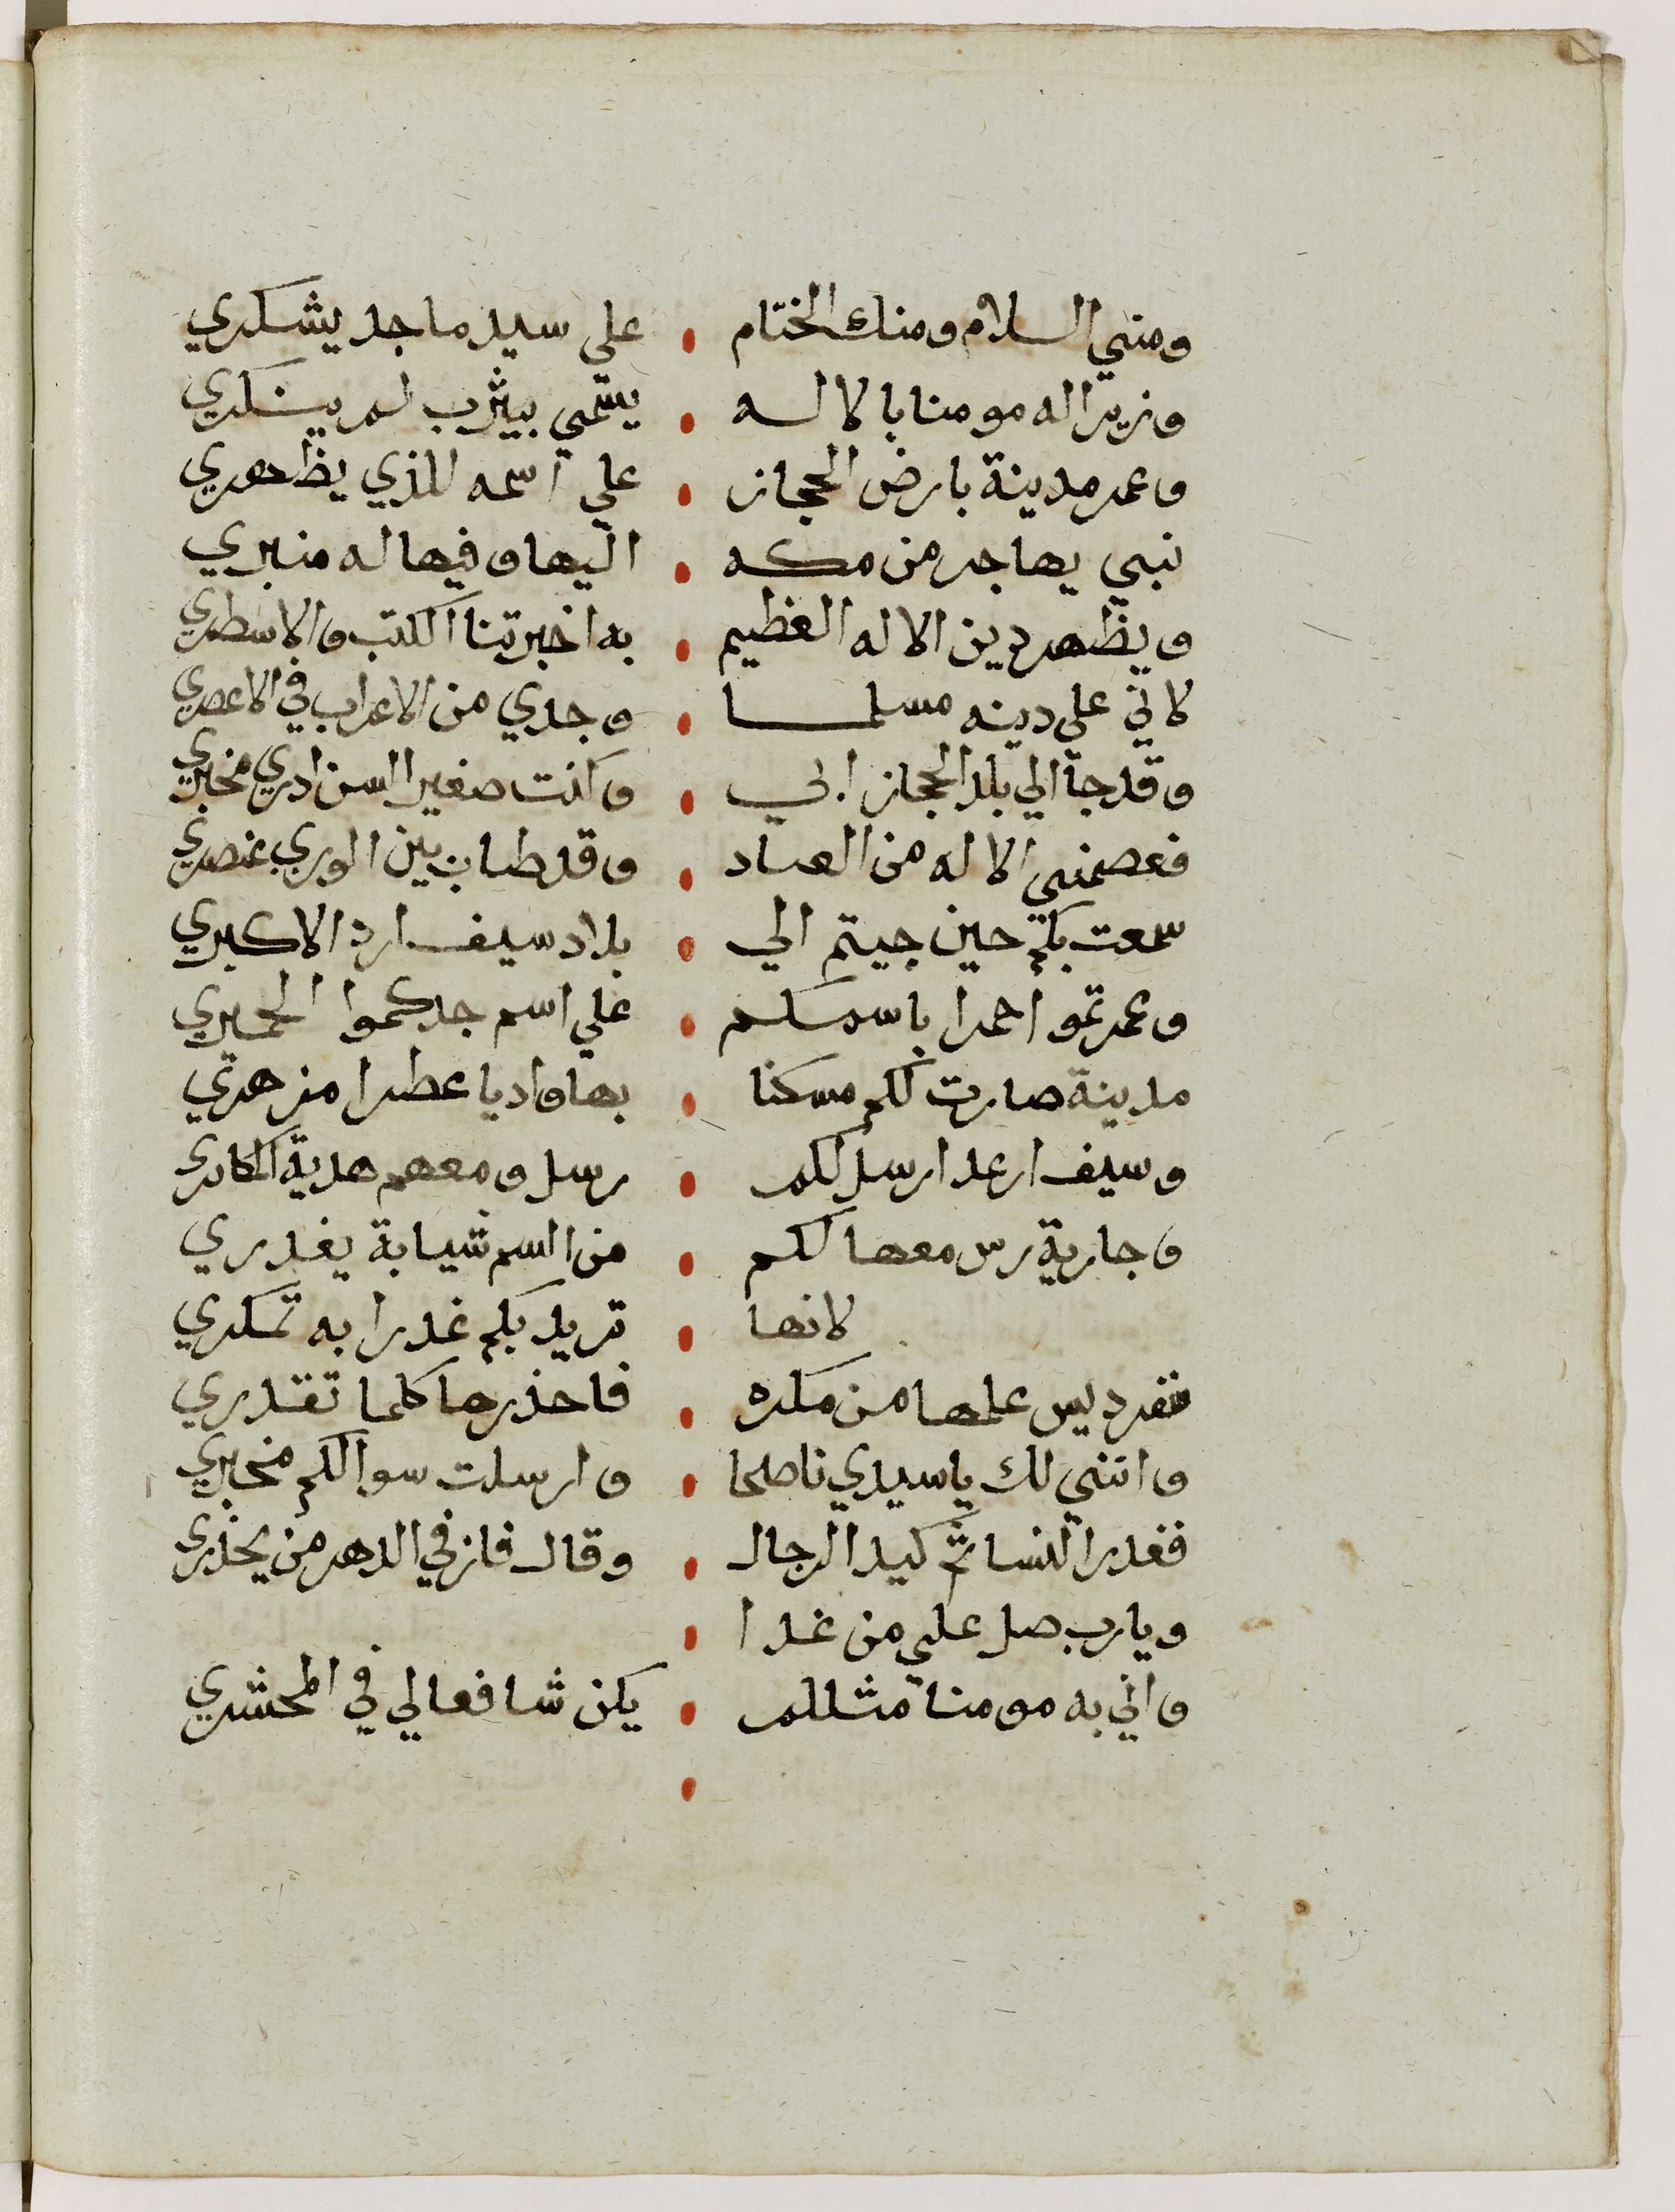 ومني السلام ومنك الختام • علي سيد ماجد يشكري
وزيرا له مومنا بالاله • يسمي بيثرب لم ينكري
وعمر مدينة بارض الحجاز • علي اسمه الذي يظهري
نبي يهاجر من مكه • اليها وفيها له منبري
ويظهر دين الاله العظيم • به اخبرتنا الكتب والاسطري
لاني علي دينه مسلما • وجدي من الاعراب في الاعصري
وقد جا الي بلد الحجاز ابي • وكنت صغير السن ادري مخبري
فعصمني الاله من العباد • وقد طاب بين الوري عنصري
سمعت بكم حين جيتم الي • بلاد سيف ارد الاكبري
وعمرتمو احمرا باسمكم • علي اسم جدكموا الحميري
مدينة صارت لكم مسكنا • بها واديا عطرا مزهري
وسيف ارعد ارسل لكم • رسل ومعهم هدية
وجارية معها لكم • من السم شيابة يغدري
لانها • تريد بكم غدرا به تمكري
عليها من مكره • فاحذرها كلما تقدري
وانني لك يا سيدي ناصحا • وارسلت سوا لكم مخبري
فغدر النسا ثم كيد الرجال • وقال فاز في الدهر من يحذري
ويارب صل علي من غدا •
واني به مومنا مثلكم • يكن شافعا لي في المحشري